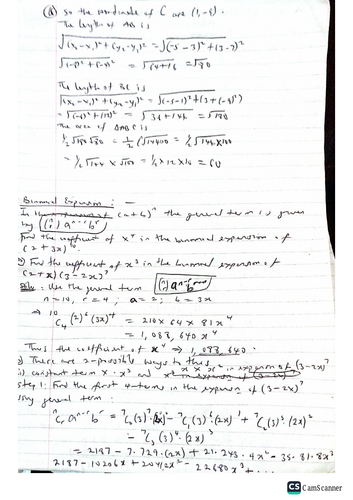 (d) So the coordinate of C are (1,-9).
The length of AB is
√(x₂-x₁)²+(y₂-y₁)² = √(-5-3)²+(3-7)²
= √64+16 = √80
The length of BC is
√(x₂-x₁)²+(y₂-y₁)² = √(-5-1)²+(3+(-9)²)
= √(-6)²+(12)² = √36+144 = √180
The area of ΔABC is
½√180 √80 = ½√14400 = ½√144×100
= ½√144 × √100 = ½×12×10 = 60
Binomial Expansion : -
(a+b)ⁿ the general term is given
by (ⁿᵣ) aⁿ⁻ʳ bʳ
Find the coefficient of x⁴ in the binomial expansion of
(2+3x)¹⁰
2) Find the coefficient of x³ in the binomial expansion of
(2+x)(3-2x)⁷
Soln : Use the general term (ⁿᵣ) aⁿ⁻ʳ bʳ
n=10, r=4; a=2; b=3x
⇒ ¹⁰C₄(2)⁶(3x)⁴ = 210×64×81x⁴
= 1,088,640x⁴
Thus the coefficient of x⁴ ⇒ 1,088,640.
There are 2-possible ways to this
constant term × x³ and x × x² in expansion of (3-2x)⁷
step 1: Find the first 4 terms in the expansion of (3-2x)⁷
using general term :
ⁿCᵣ aⁿ⁻ʳ bʳ = ⁷C₀(3)⁷ - ⁷C₁(3)⁶(2x)¹ + ⁷C₂(3)⁵(2x)²
- ⁷C₃(3)⁴(2x)³
= 2187 - 7·729·(2x) + 21·243·4x² - 35·81·8x³
2187 - 10206x + 20412x² - 22680x³ + ...
CS CamScanner